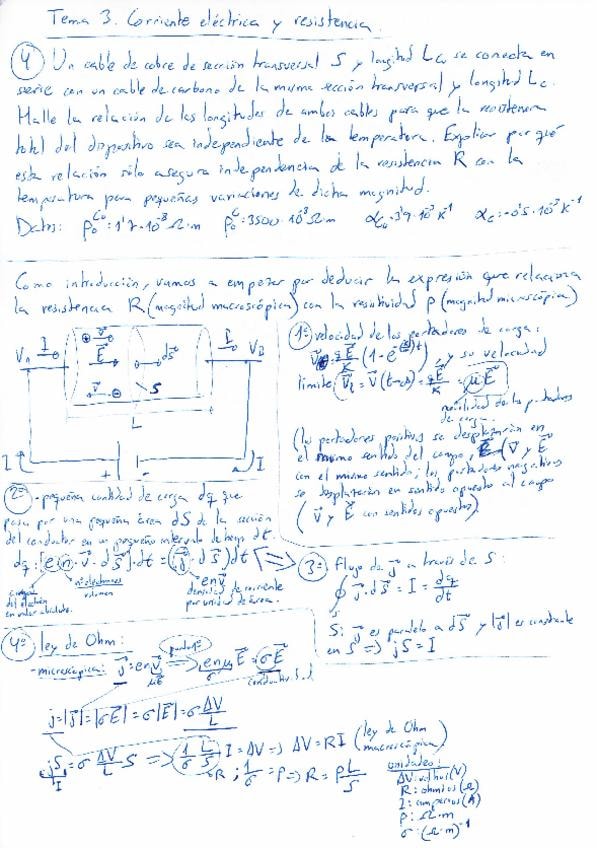 Tema 3. Corriente eléctrica y resistencia.
4 Un cable de cobre de sección transversal S y longitud LCu se conecta en
serie con un cable de carbono de la misma sección transversal y longitud LC.
Halle la relación de las longitudes de ambos cables para que la resistencia
total del dispositivo sea independiente de la temperatura. Explicar por qué
esta relación sólo asegura independencia de la resistencia R con la
temperatura para pequeñas variaciones de dicha magnitud.
Datos: ρ₀^Cu = 1'7·10⁻⁸ Ω·m ρ₀^C = 3500·10⁻⁸ Ω·m αCu = 3'9·10⁻³ K⁻¹ αC = -0'5·10⁻³ K⁻¹
Como introducción, vamos a empezar por deducir la expresión que relaciona
la resistencia R (magnitud macroscópica) con la resistividad ρ (magnitud microscópica)
VA I v⃗ E⃗ dS⃗ I VB
v⃗ S
L
I + - I
1º velocidad de los portadores de carga:
, y su velocidad
límite: v⃗l = v⃗(t→∞) = qE⃗/K = μE⃗
movilidad de los portadores
de carga.
(los portadores positivos se desplazarán en
el mismo sentido del campo, (v⃗ y E⃗
con el mismo sentido; los portadores negativos
se desplazarán en sentido opuesto al campo
(v⃗ y E⃗ con sentidos opuestos)
2º - pequeña cantidad de carga dq que
pasa por una pequeña área dS de la sección
del conductor en un pequeño intervalo de tiempo dt.
dq = [e(n)·v⃗·dS⃗]·dt = (j⃗·dS⃗)dt ⟹
carga
del electrón
en valor absoluto.
nº electrones
volumen
env⃗
densidad de corriente
por unidad de área.
3º Flujo de j⃗ a través de S:
∮S j⃗·dS⃗ = I = dq/dt
Si j⃗ es paralelo a dS⃗ y |j⃗| es constante
en S ⟹ jS = I
4º ley de Ohm:
- microscópica: j⃗ = env⃗ ⟹ enμE⃗ = σE⃗
μE⃗ σ
j = |j⃗| = |σE⃗| = σ|E⃗| = σ ΔV/L
jS = σ ΔV/L S ⟹ (1/σ L/S) I = ΔV ⟹ ΔV = RI (ley de Ohm
macroscópica)
I R ; 1/σ = ρ ⟹ R = ρ L/S
unidades:
ΔV: voltios (V)
R: ohmios (Ω)
I: amperios (A)
ρ: Ω·m
σ: (Ω·m)⁻¹